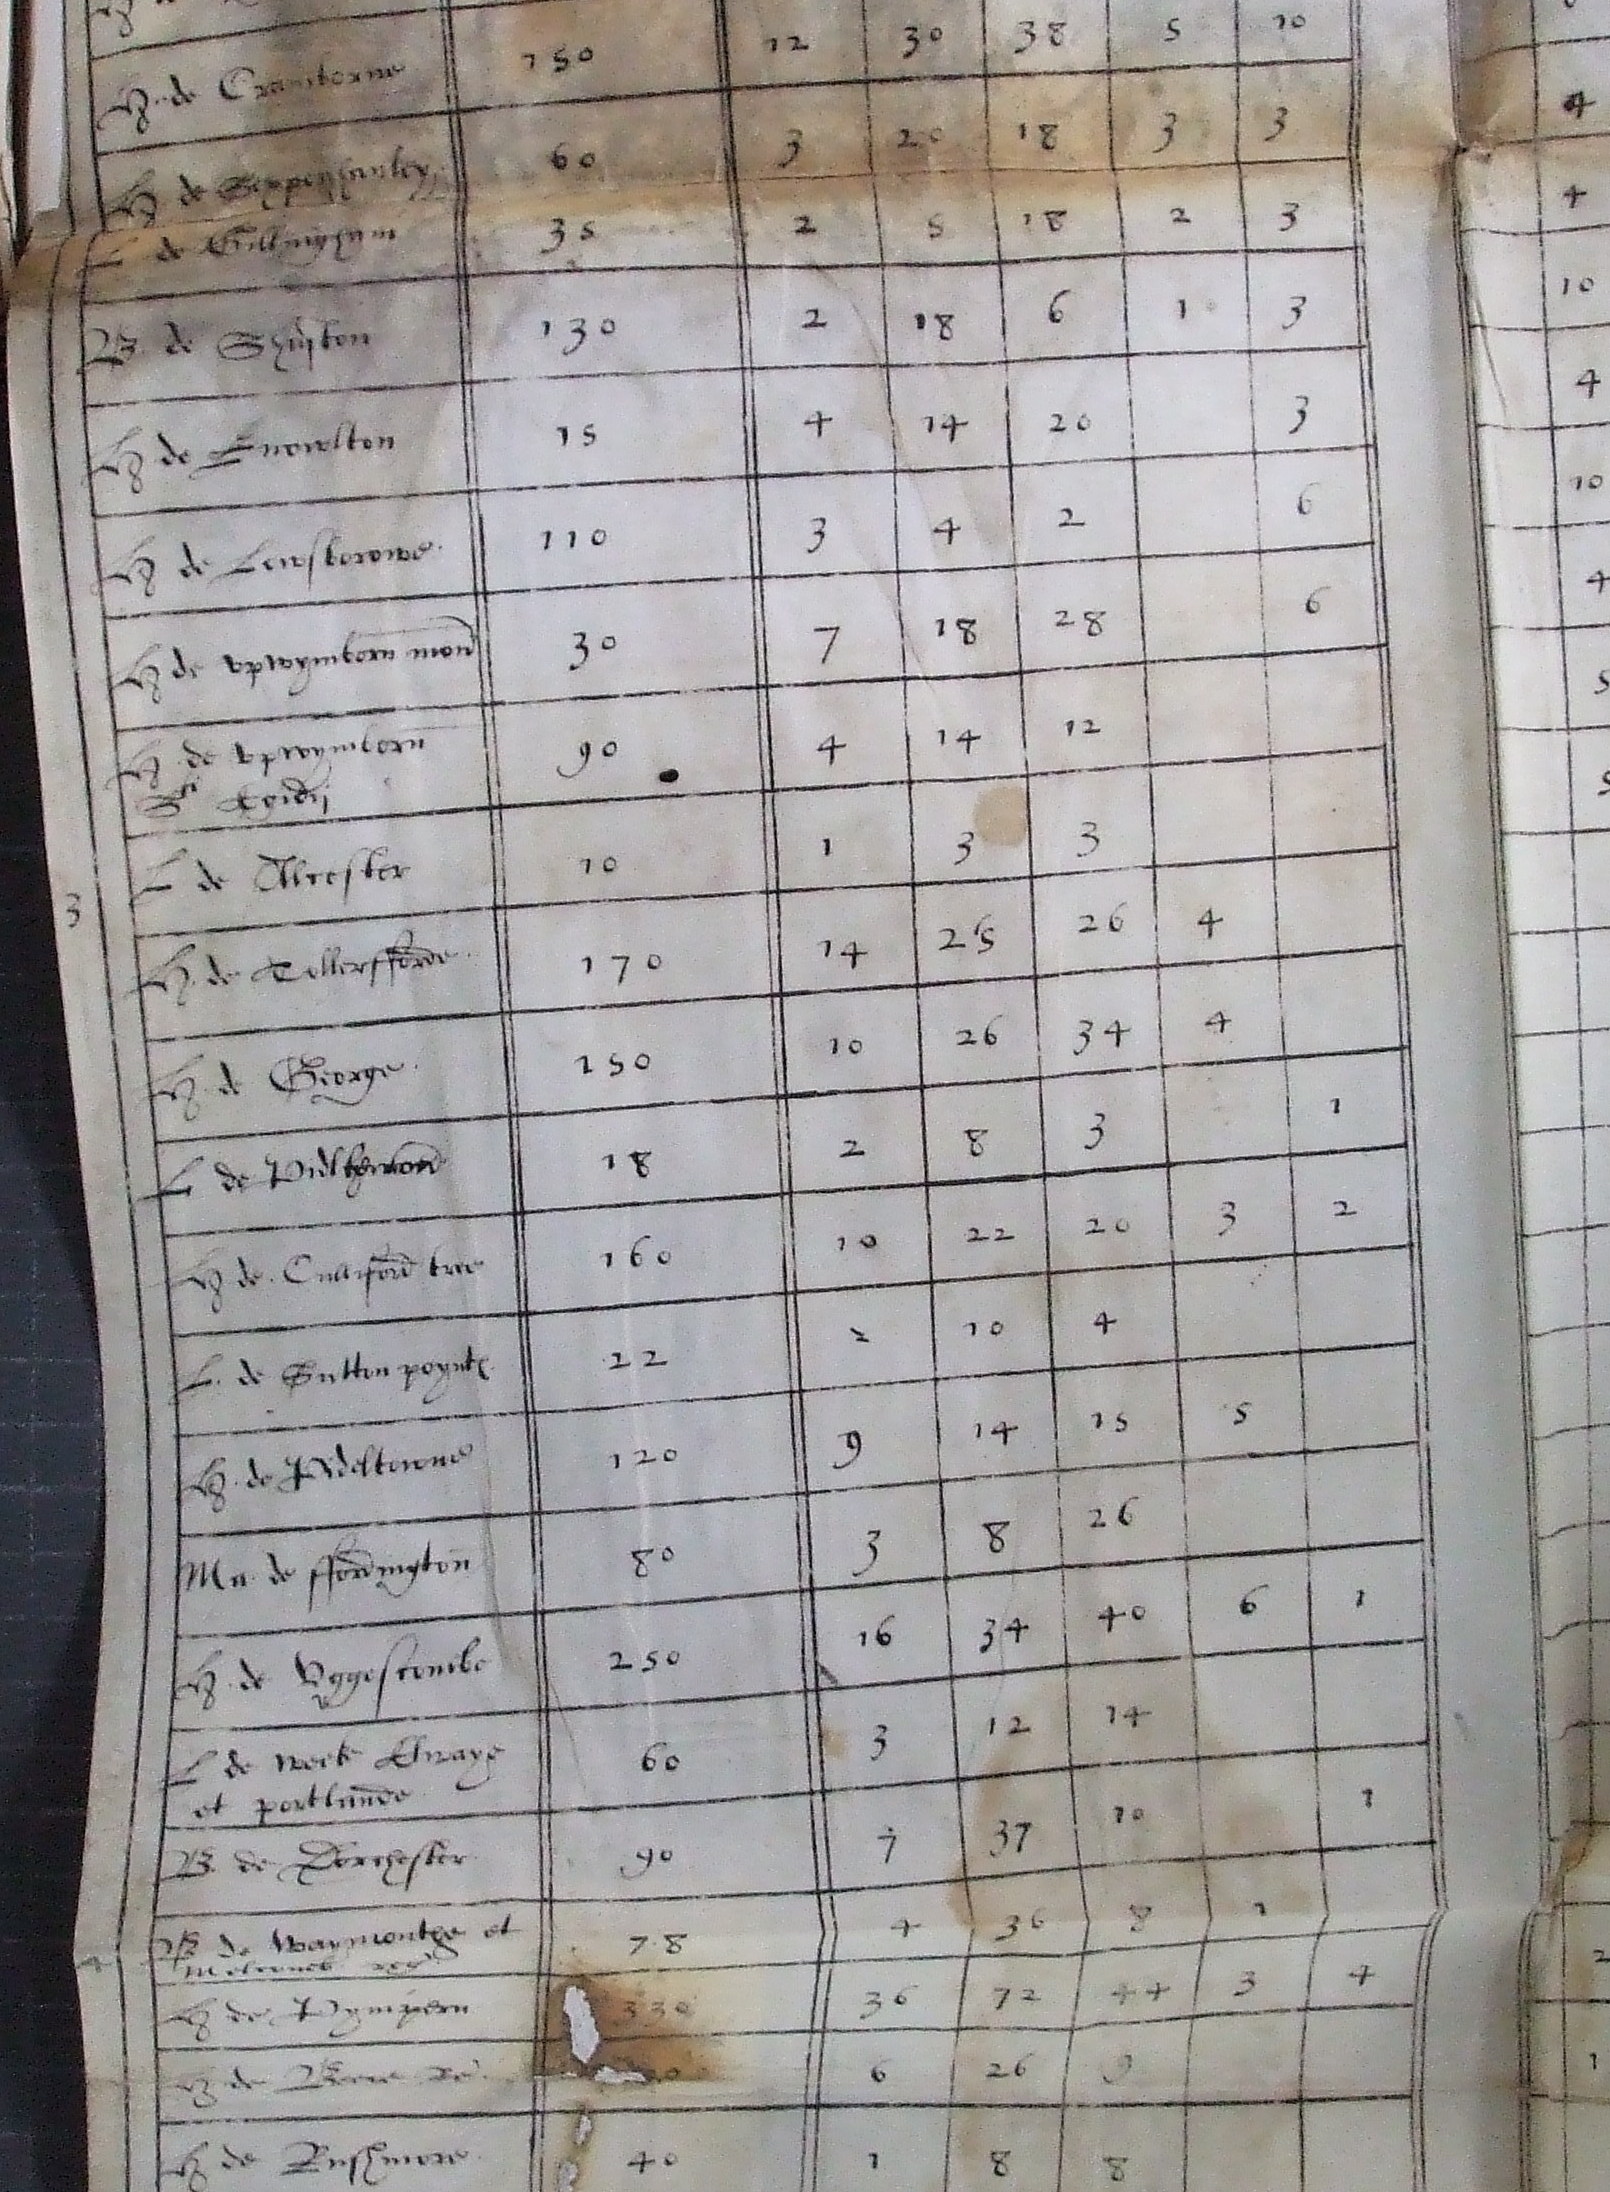 H. de Cranborne 150 12 30 38 5 10
H de Sexpenhanley 60 3 20 18 3 3
L de Gillingham 35 2 5 18 2 3
B. de Shafton 130 2 18 6 1 3
H de Knowlton 15 4 14 20 3
H de Lewsborowe 110 3 4 2 6
H de upwymborn mon 30 7 18 28 6
H de upwymborn 90 4 14 12
Sci Egidij
L de Alcester 10 1 3 3
3
H. de Tollerfforde 170 14 25 26 4
H. de George 150 10 26 34 4
L de 18 2 8 3 1
H de Culliford tree 160 10 22 20 3 2
L. de Sutton poyntz 22 2 10 4
H. de Pideltowne 120 9 14 15 5
Ma. de ffordington 80 3 8 26
H. de Uggescombe 250 16 34 40 6 1
L de weeke Elwaye 60 3 12 14
et portlande
B. de Dorchester 90 7 37 10 1
B de Waymouthe et 78 4 36 8 1
Melcomb reg
H de Pympern 330 36 72 44 3 4
H de Beere re 6 26 9
H de Rushmore 40 1 8 8
4
4
10
4
10
4
5
5
2
1